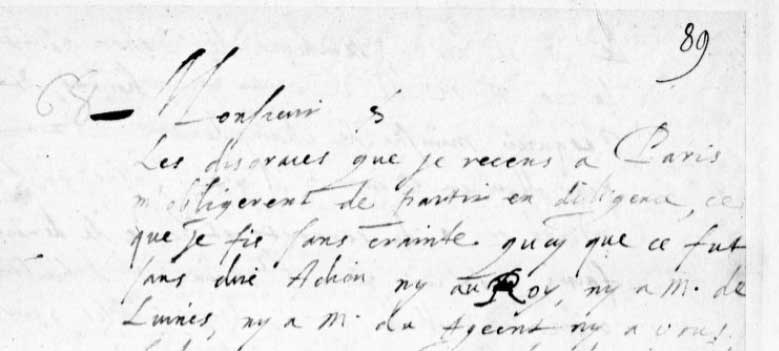 89
Monsieur
Les disgraces que je receus a Paris
m'obligerent de partir en diligence, ce
que je fis sans crainte quoy que ce fut
sans dire Adieu ny au Roy, ny a M. de
Luines, ny a M. du Ageent ny a vous